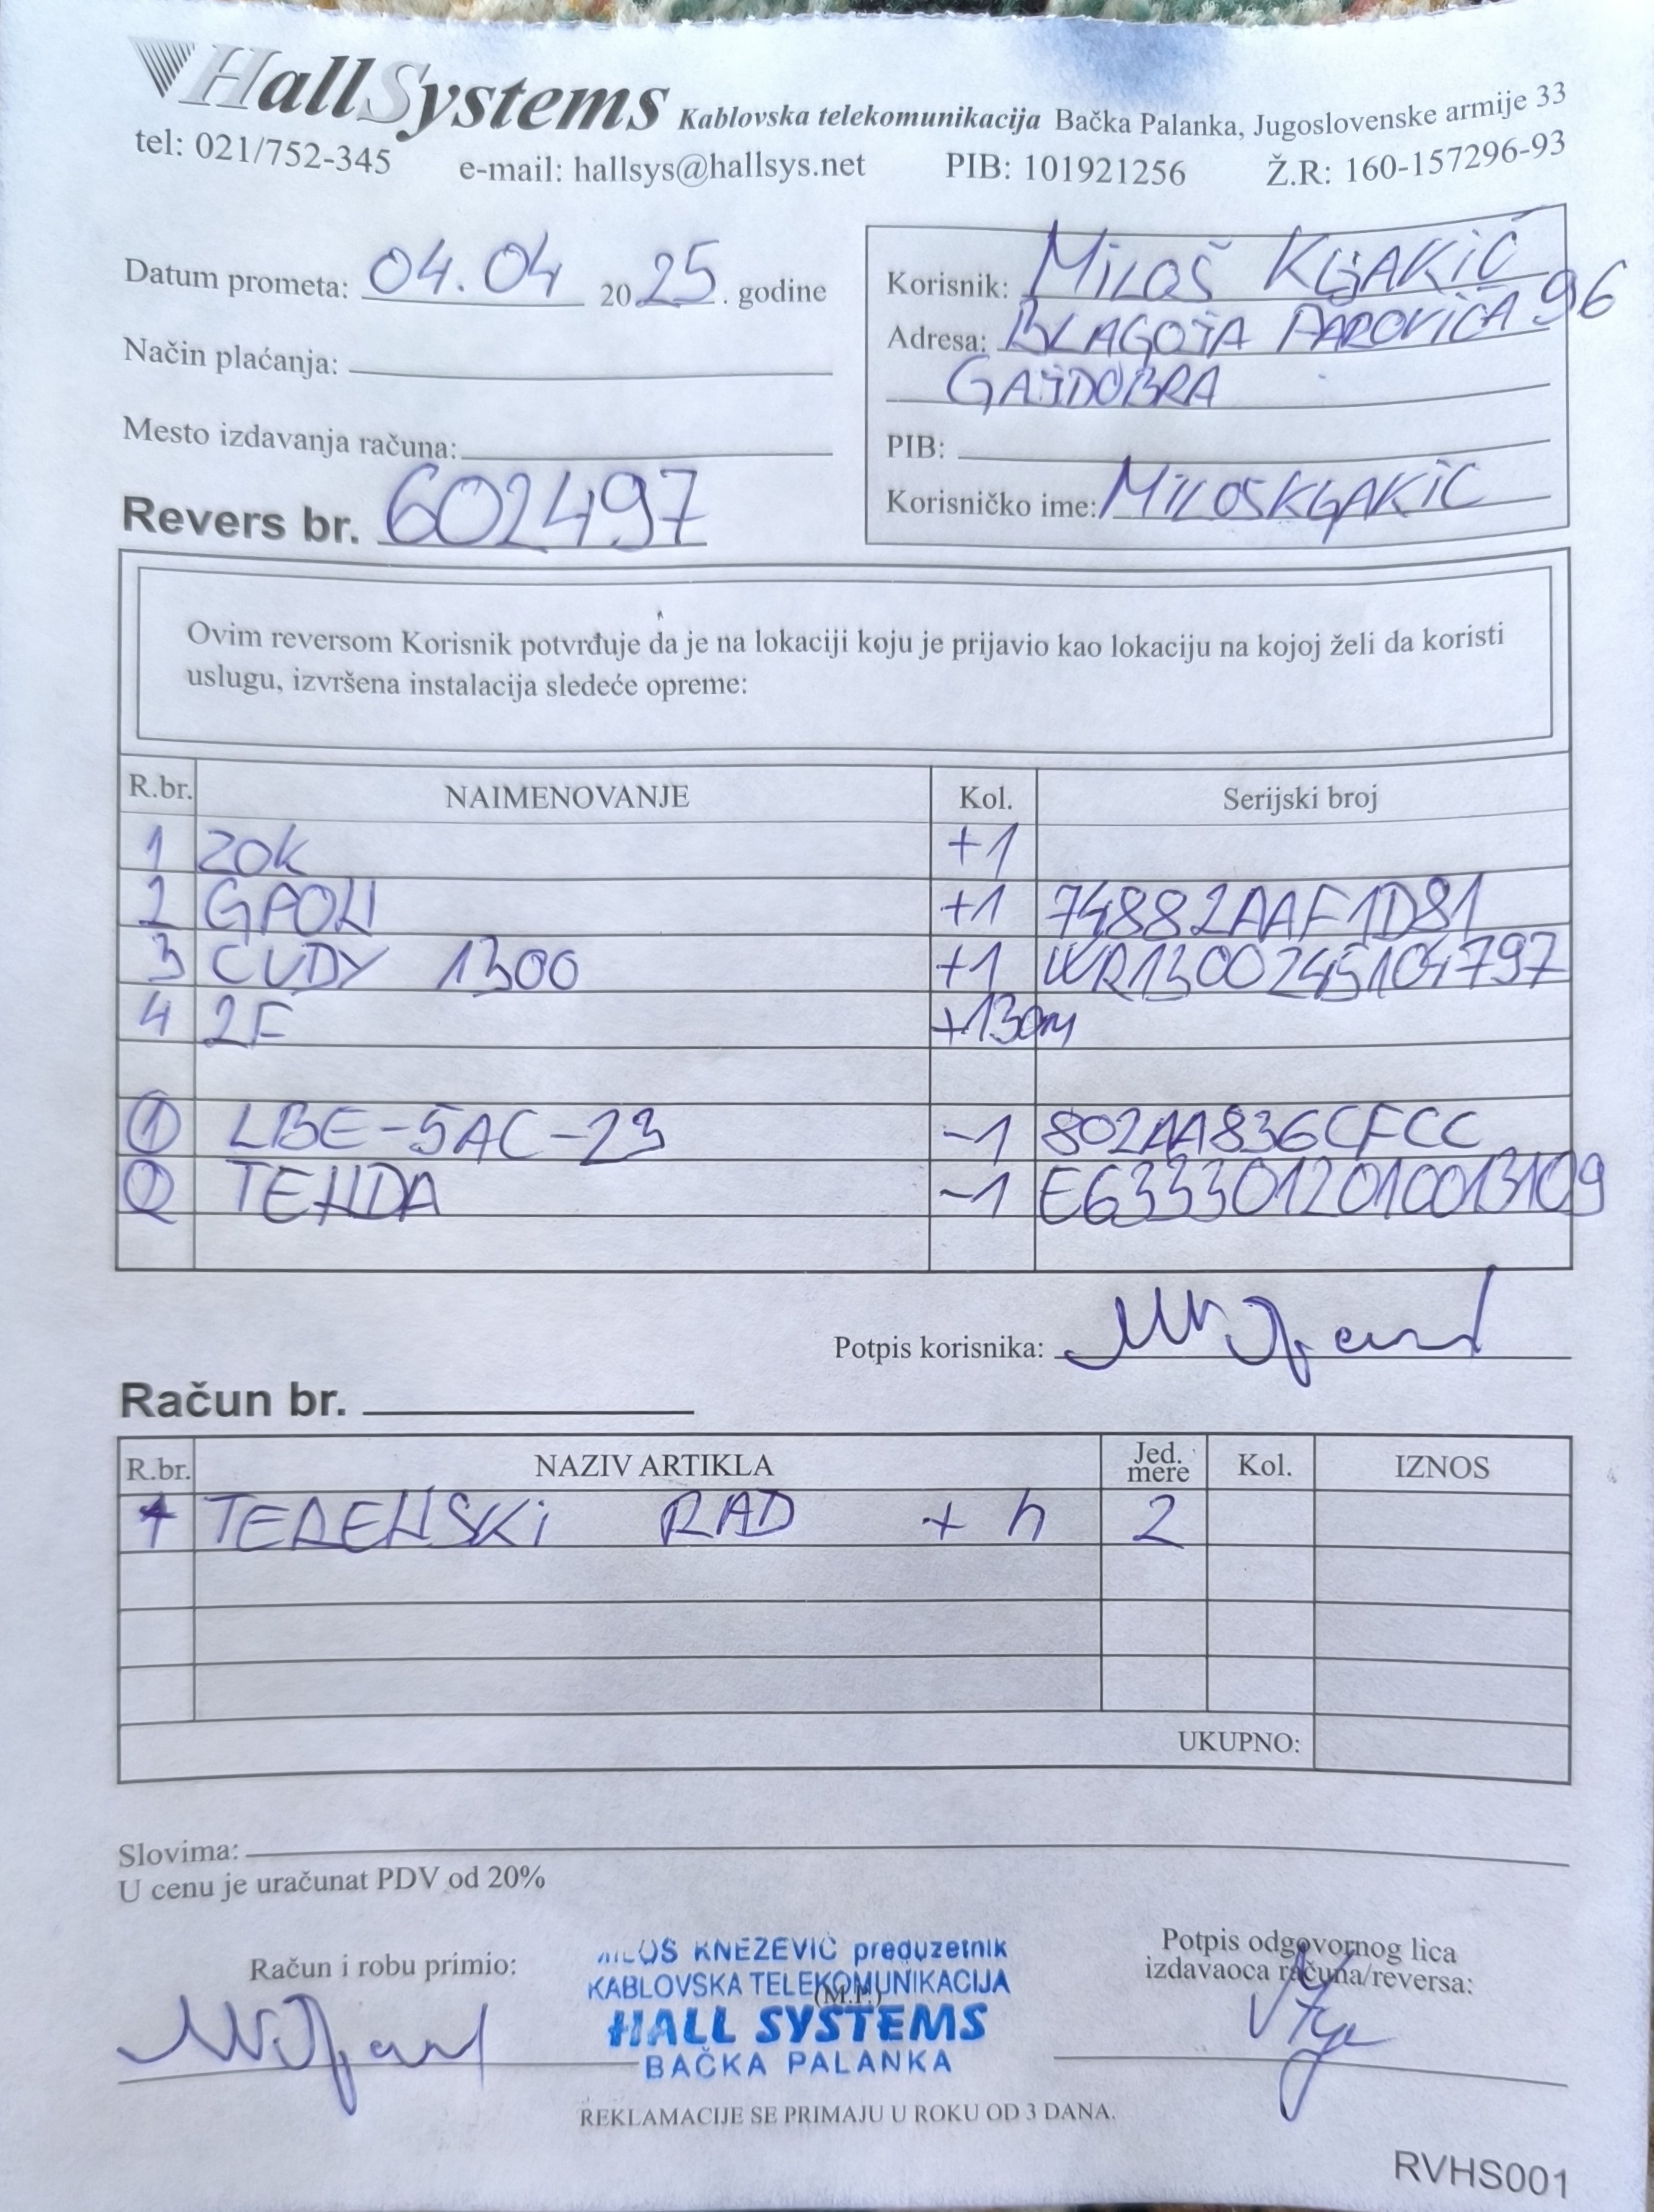 HallSystems Kablovska telekomunikacija Bačka Palanka, Jugoslovenske armije 33
tel: 021/752-345 e-mail: hallsys@hallsys.net PIB: 101921256 Ž.R: 160-157296-93
Datum prometa: 04.04 2025. godine
Način plaćanja:
Mesto izdavanja računa:
Revers br. 602497
Korisnik: MILOŠ KLJAKIĆ
Adresa: BLAGOJA PAROVIĆA 96
GAJDOBRA
PIB:
Korisničko ime: MILOSKLJAKIC
Ovim reversom Korisnik potvrđuje da je na lokaciji koju je prijavio kao lokaciju na kojoj želi da koristi
uslugu, izvršena instalacija sledeće opreme:
R.br. NAIMENOVANJE Kol. Serijski broj
1 ZOK +1
2 GPON +1 74882AAF1D81
3 CUDY 1300 +1 WR1300245104797
4 2F +130m
1 LBE-5AC-23 -1 802AA836CFCC
2 TENDA -1 E6333012010013109
Potpis korisnika:
Račun br.
R.br. NAZIV ARTIKLA Jed. mere Kol. IZNOS
1 TERENSKI RAD + h 2
UKUPNO:
Slovima:
U cenu je uračunat PDV od 20%
Račun i robu primio:
MILOŠ KNEŽEVIĆ preduzetnik
KABLOVSKA TELEKOMUNIKACIJA
(M.P.)
HALL SYSTEMS
BAČKA PALANKA
Potpis odgovornog lica
izdavaoca računa/reversa:
REKLAMACIJE SE PRIMAJU U ROKU OD 3 DANA.
RVHS001